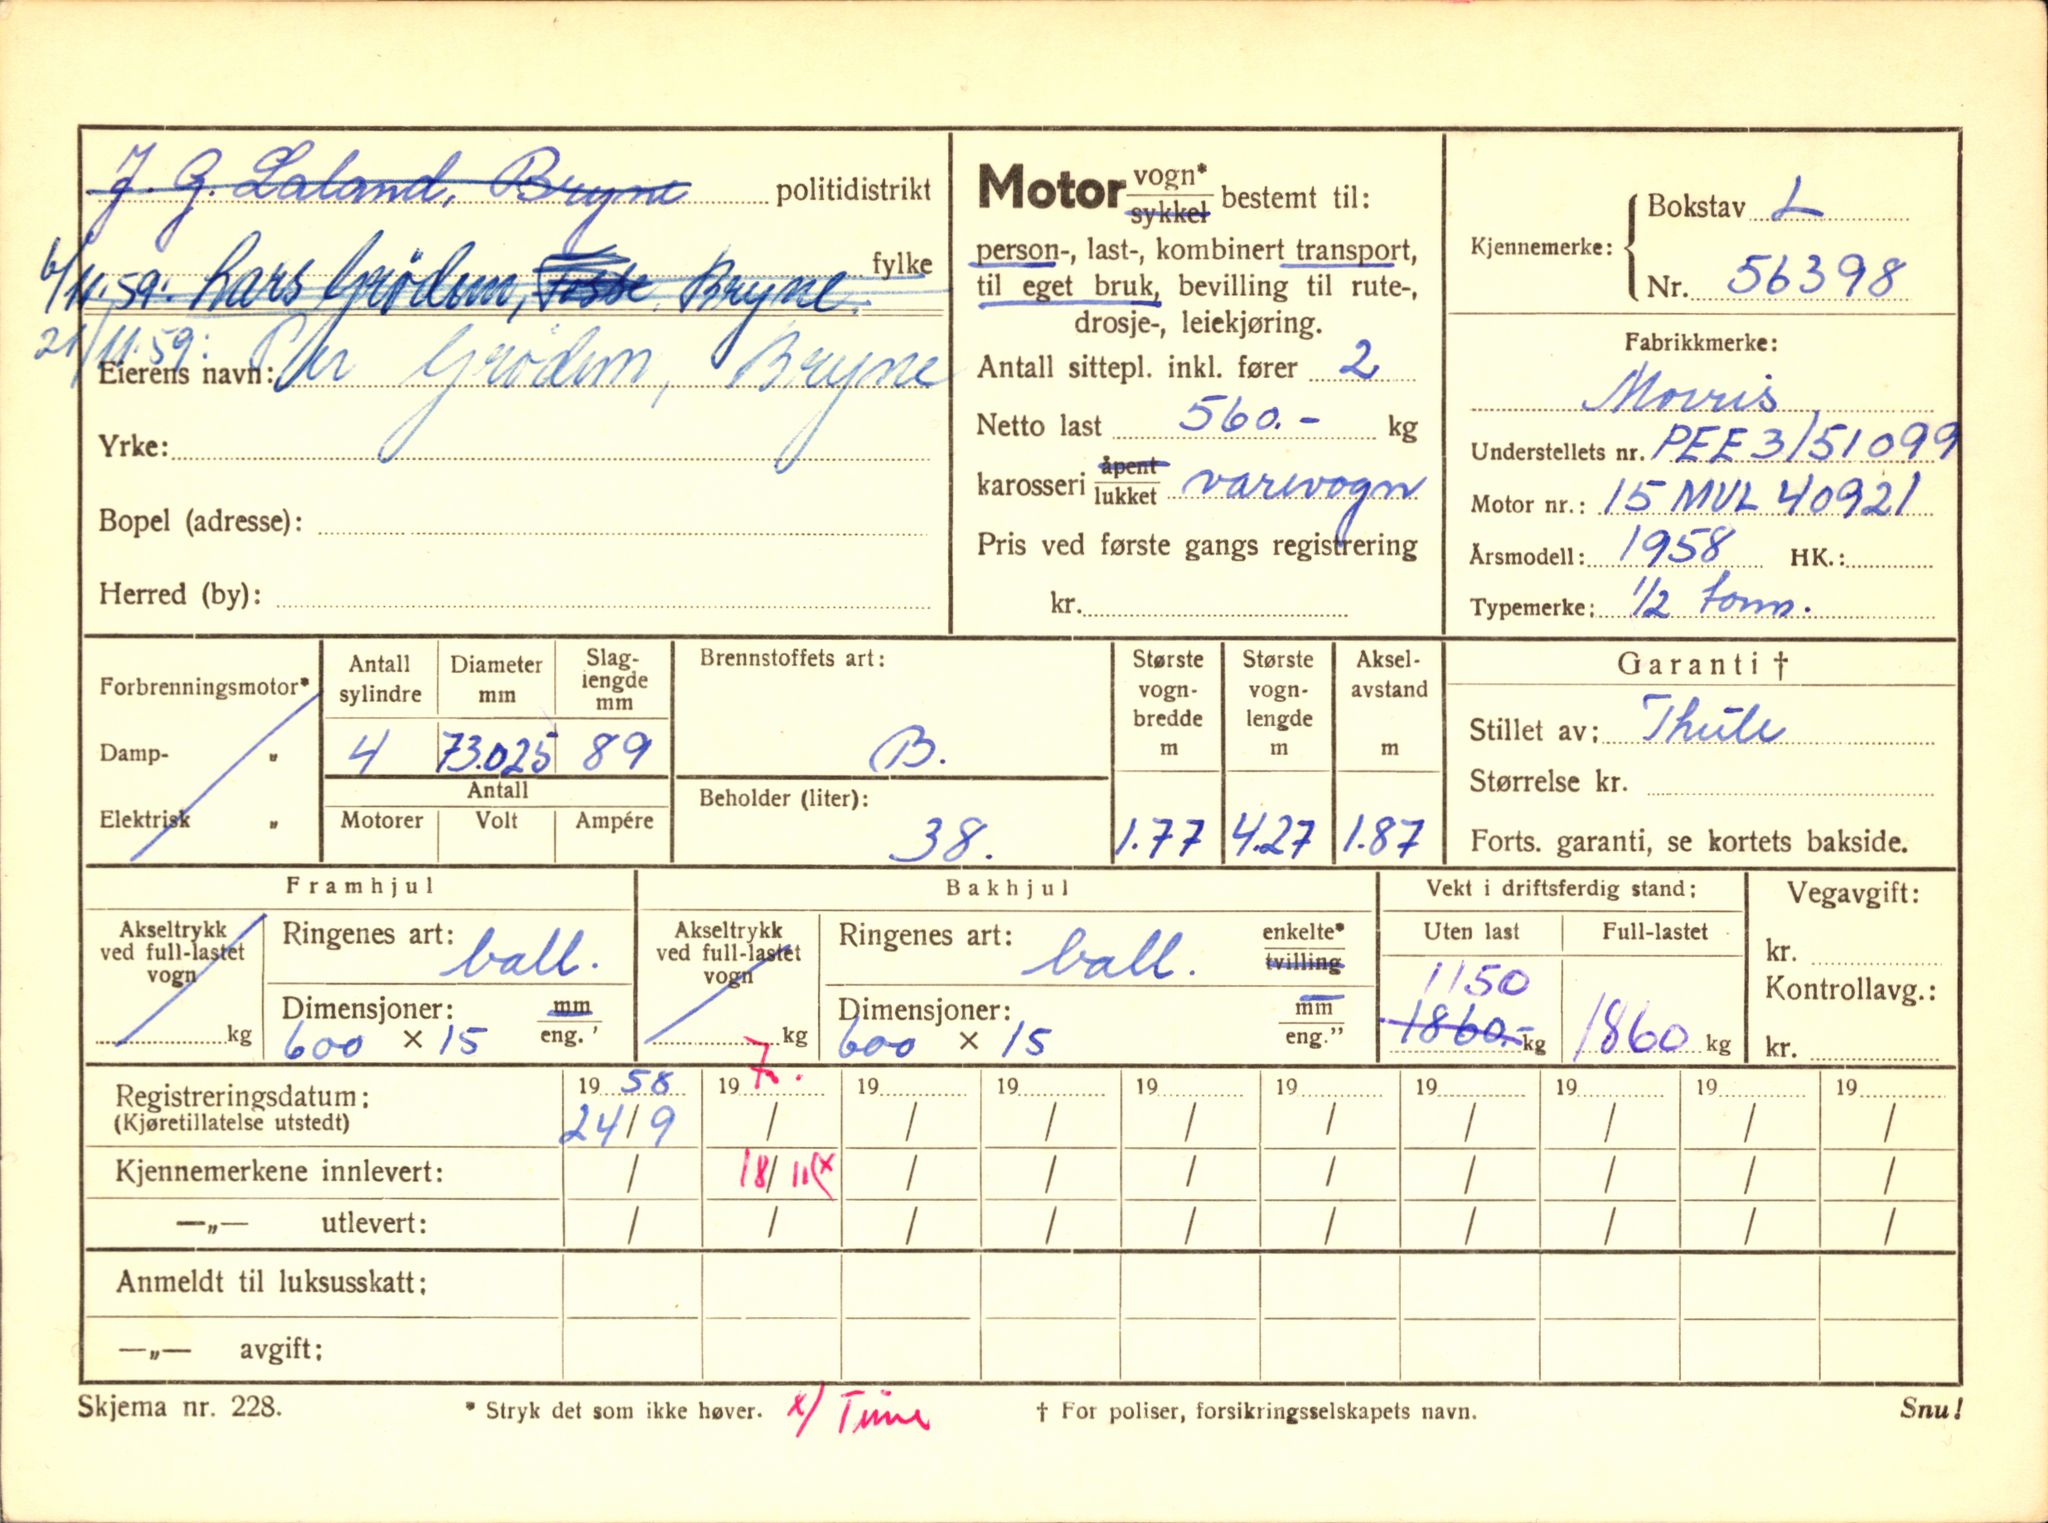 J. G. Laland, Bryne politidistrikt
6/11.59: Lars Grödem, Fosse, Bryne. fylke
21/11.59: Per Grödem, Bryne
Eierens navn:
Yrke:
Bopel (adresse):
Herred (by):
Motor vogn* sykkel bestemt til:
person-, last-, kombinert transport,
til eget bruk, bevilling til rute-,
drosje-, leiekjøring.
Antall sittepl. inkl. fører 2
Netto last 560.- kg
karosseri åpent lukket varevogn
Pris ved første gangs registrering
kr.
Kjennemerke: Bokstav L
Nr. 56398
Fabrikkmerke:
Morris
Understellets nr. PEE 3/51099
Motor nr.: 15 MVL 40921
Årsmodell: 1958 HK.:
Typemerke: 1/2 tonn.
Forbrenningsmotor*
Damp- „
Elektrisk „
Antall sylindre
Diameter mm
Slaglengde mm
4 73.025 89
Antall
Motorer Volt Ampére
Brennstoffets art:
B.
Beholder (liter):
38.
Største vognbredde m
1.77
Største vognlengde m
4.27
Akselavstand m
1.87
Garanti †
Stillet av: Thule
Størrelse kr.
Forts. garanti, se kortets bakside.
Framhjul
Akseltrykk ved full-lastet vogn
kg
Ringenes art: ball.
Dimensjoner: mm eng.'
600 × 15
Bakhjul
Akseltrykk ved full-lastet vogn
kg
Ringenes art: ball. enkelte* tvilling
Dimensjoner: mm eng."
600 × 15
Vekt i driftsferdig stand:
Uten last Full-lastet
1150
1860.- kg 1860 kg
Vegavgift:
kr.
Kontrollavg.:
kr.
Registreringsdatum: 19 58 19 7. 19 19 19 19 19 19 19 19
(Kjøretillatelse utstedt) 24/9 / / / / / / / / /
Kjennemerkene innlevert: / 18/11 (x / / / / / / / /
—„— utlevert: / / / / / / / / / /
Anmeldt til luksusskatt:
—„— avgift:
Skjema nr. 228. * Stryk det som ikke høver. x/ Time † For poliser, forsikringsselskapets navn. Snu!